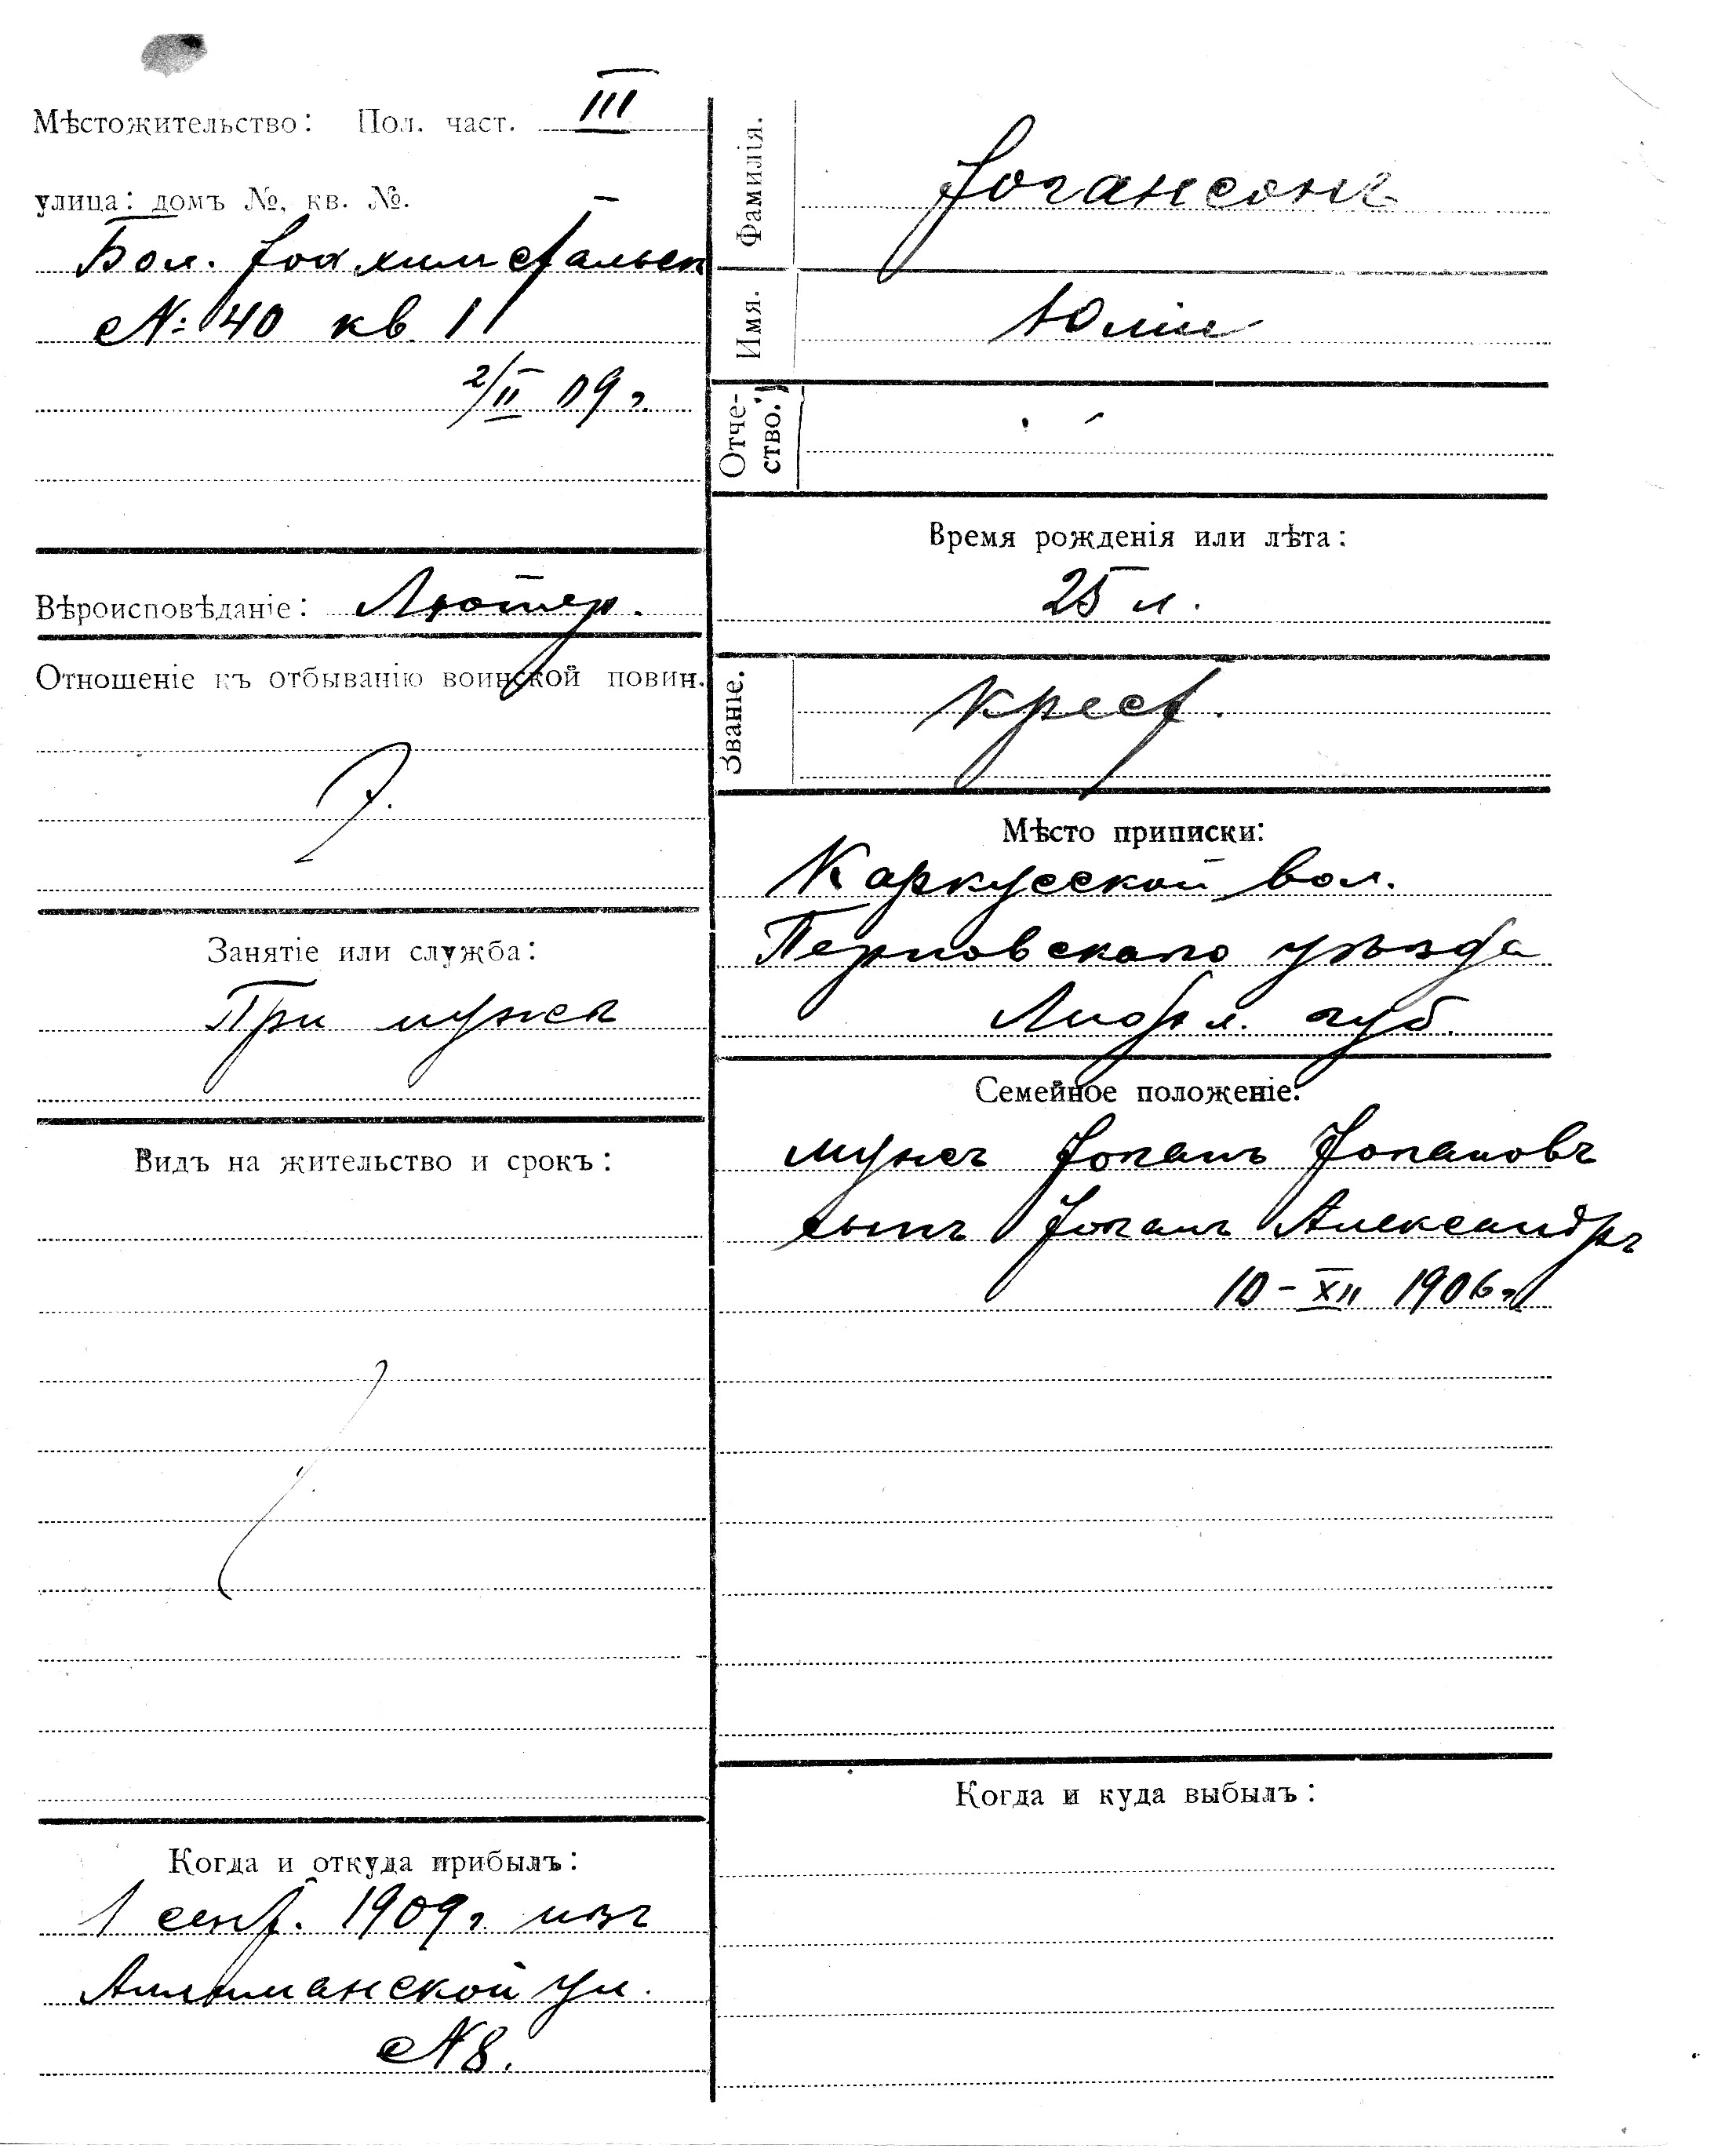 Мѣстожительство: Пол. част. III
улица: домъ №, кв. №.
Бол. Іоахимстальск
№ 40 кв. 1
2/II 09 г.
Вѣроисповѣданіе: Лютер.
Отношеніе къ отбыванію воинской повин.
Занятіе или служба:
При мужѣ
Видъ на жительство и срокъ:
Когда и откуда прибылъ:
1 сент. 1909 г. изъ
ской ул.
№ 8.
Фамилія. Іогансонъ
Имя. Юлія
Отче-
ство.
Время рожденія или лѣта:
25 л.
Званіе. Крест.
Мѣсто приписки:
Каркусской вол.
Перновскаго уѣзда
Лифл. губ.
Семейное положеніе:
мужъ Іоганъ Іогановъ
сынъ Іоганъ Александръ
10-XII 1906 г.
Когда и куда выбылъ: